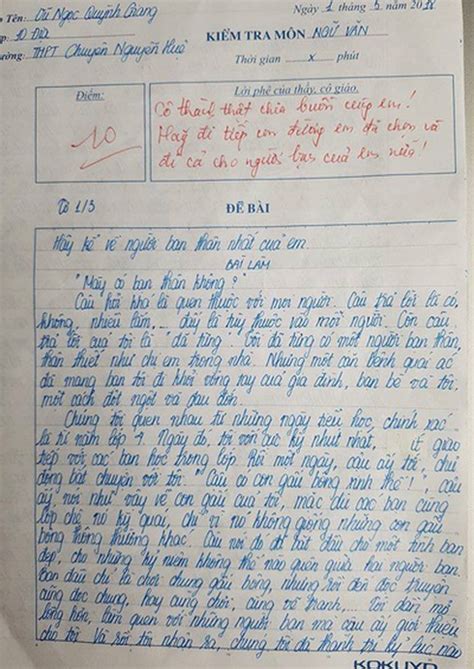 Họ Tên: Vũ Ngọc Quỳnh Giang
Ngày 2 tháng 5 năm 2018
Lớp: 10 Địa
KIỂM TRA MÔN NGỮ VĂN
Trường: THPT Chuyên Nguyễn Huệ
Thời gian x phút
Điểm:
10
Lời phê của thầy, cô giáo.
Cô thành thật chia buồn cùng em!
Hãy đi tiếp con đường em đã chọn và
đi cả cho người bạn của em nữa!
ĐỀ BÀI
Hãy kể về người bạn thân nhất của em.
BÀI LÀM
"Mày có bạn thân không?"
Câu hỏi khá là quen thuộc với mọi người. Câu trả lời là có,
không, nhiều lắm,... đấy là tùy thuộc vào mỗi người. Còn câu
trả lời của tôi là "đã từng". Tôi đã từng có một người bạn thân,
thân thiết như chị em trong nhà. Nhưng một căn bệnh quái ác
đã mang bạn tôi đi khỏi vòng tay của gia đình, bạn bè và tôi,
một cách đột ngột và đau đớn.
Chúng tôi quen nhau từ những ngày tiểu học, chính xác
là từ năm lớp 4. Ngày đó, tôi vốn cực kỳ nhút nhát, ít giao
tiếp với các bạn học trong lớp. Rồi một ngày, cậu ấy tới, chủ
động bắt chuyện với tôi: "Cậu có con gấu bông xinh thế!", cậu
ấy nói như vậy về con gấu của tôi, mặc dù các bạn cùng
lớp chê nó kỳ quái, chỉ vì nó không giống những con gấu
bông thông thường khác. Câu nói đó đã bắt đầu cho một tình bạn
đẹp, cho những kỷ niệm không thể nào quên giữa hai người bạn.
Ban đầu chỉ là chơi chung gấu bông, nhưng rồi đến đọc truyện
cùng đọc chung, hay cùng chơi, cùng vẽ tranh,... Tôi dần mở
lòng hơn, làm quen với những người bạn mà cậu ấy giới thiệu
cho tôi. Và rồi tôi nhận ra, chúng tôi đã thành tri kỷ lúc nào
KOKUYO